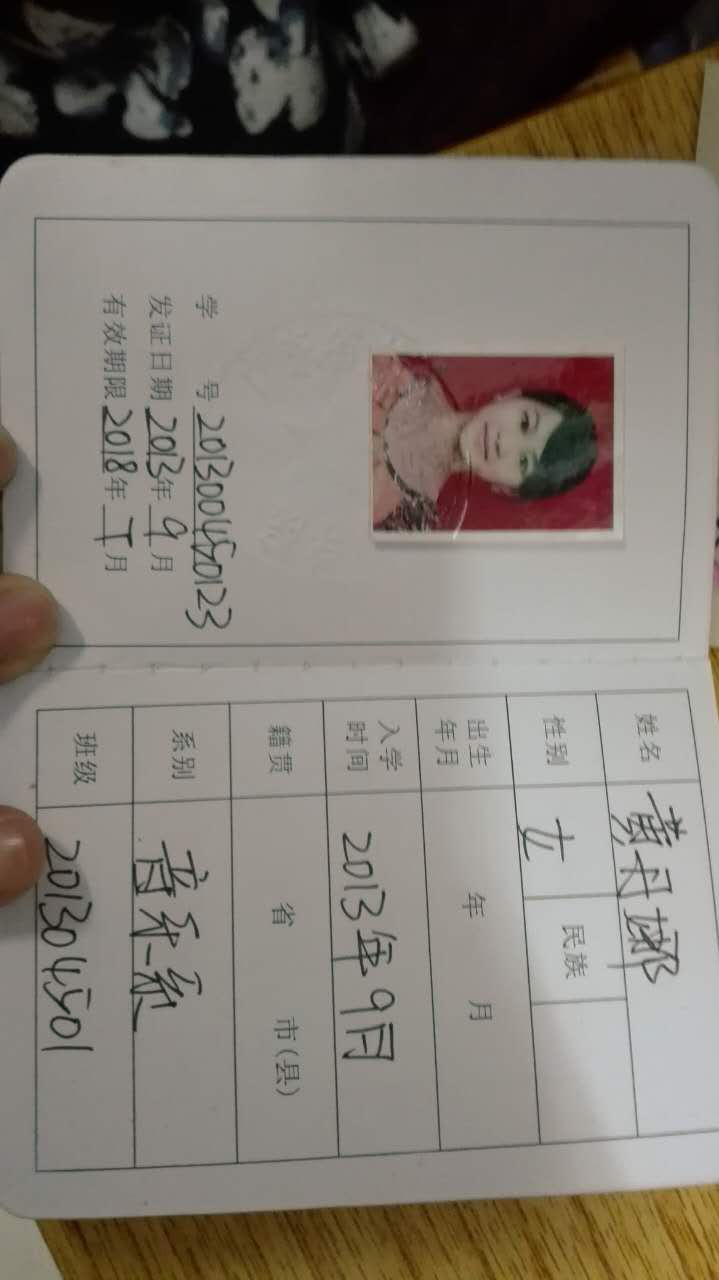 学 号 201300450123
发证日期 2013年9月
有效期限 2018年 月
姓名 黄丹娜
性别 女 民族
出生年月 年 月
入学时间 2013年9月
籍贯 省 市(县)
系别 音乐系
班级 201304501